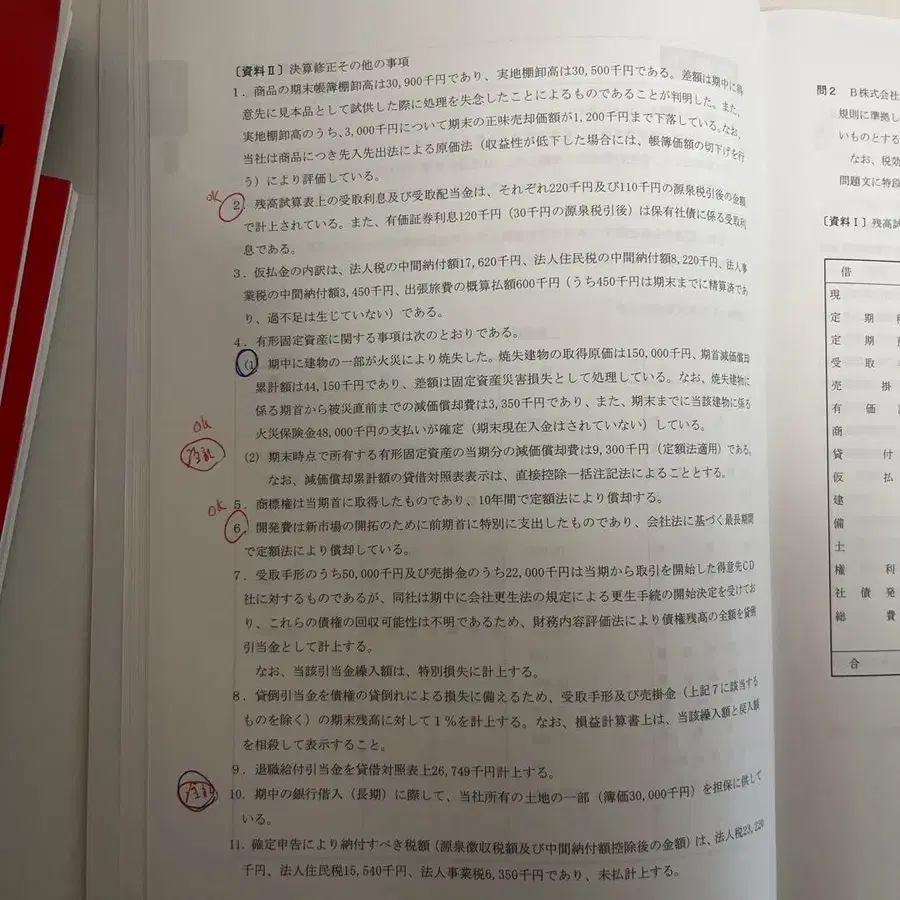 〔資料Ⅱ〕決算修正その他の事項
1．商品の期末帳簿棚卸高は30,900千円であり、実地棚卸高は30,500千円である。差額は期中に得
意先に見本品として試供した際に処理を失念したことによるものであることが判明した。また、
実地棚卸高のうち、3,000千円について期末の正味売却価額が1,200千円まで下落している。なお、
当社は商品につき先入先出法による原価法（収益性が低下した場合には、帳簿価額の切下げを行
う）により評価している。
OK
2．残高試算表上の受取利息及び受取配当金は、それぞれ220千円及び110千円の源泉税引後の金額
で計上されている。また、有価証券利息120千円（30千円の源泉税引後）は保有社債に係る受取利
息である。
3．仮払金の内訳は、法人税の中間納付額17,620千円、法人住民税の中間納付額8,220千円、法人事
業税の中間納付額3,450千円、出張旅費の概算払額600千円（うち450千円は期末までに精算済であ
り、過不足は生じていない）である。
4．有形固定資産に関する事項は次のとおりである。
(1) 期中に建物の一部が火災により焼失した。焼失建物の取得原価は150,000千円、期首減価償却
累計額は44,150千円であり、差額は固定資産災害損失として処理している。なお、焼失建物に
係る期首から被災直前までの減価償却費は3,350千円であり、また、期末までに当該建物に係る
火災保険金48,000千円の支払いが確定（期末現在入金はされていない）している。
OK
(2) 期末時点で所有する有形固定資産の当期分の減価償却費は9,300千円（定額法適用）である。
なお、減価償却累計額の貸借対照表表示は、直接控除一括注記法によることとする。
5．商標権は当期首に取得したものであり、10年間で定額法により償却する。
OK
6．開発費は新市場の開拓のために前期首に特別に支出したものであり、会社法に基づく最長期間
で定額法により償却している。
7．受取手形のうち50,000千円及び売掛金のうち22,000千円は当期から取引を開始した得意先CD
社に対するものであるが、同社は期中に会社更生法の規定による更生手続の開始決定を受けてお
り、これらの債権の回収可能性は不明であるため、財務内容評価法により債権残高の全額を貸倒
引当金として計上する。
なお、当該引当金繰入額は、特別損失に計上する。
8．貸倒引当金を債権の貸倒れによる損失に備えるため、受取手形及び売掛金（上記7に該当する
ものを除く）の期末残高に対して1％を計上する。なお、損益計算書上は、当該繰入額と戻入額
を相殺して表示すること。
9．退職給付引当金を貸借対照表上26,749千円計上する。
10．期中の銀行借入（長期）に際して、当社所有の土地の一部（簿価30,000千円）を担保に供して
いる。
11．確定申告により納付すべき税額（源泉徴収税額及び中間納付額控除後の金額）は、法人税23,220
千円、法人住民税15,540千円、法人事業税6,350千円であり、未払計上する。
問2 B株式会社
規則に準拠し
いものとする
なお、税効
問題文に特段
〔資料Ⅰ〕残高試
借
現
定 期
定 期
受 取
売 掛
有 価
商
貸 付
仮 払
建
備
土
権 利
社 債 発
総 費
合